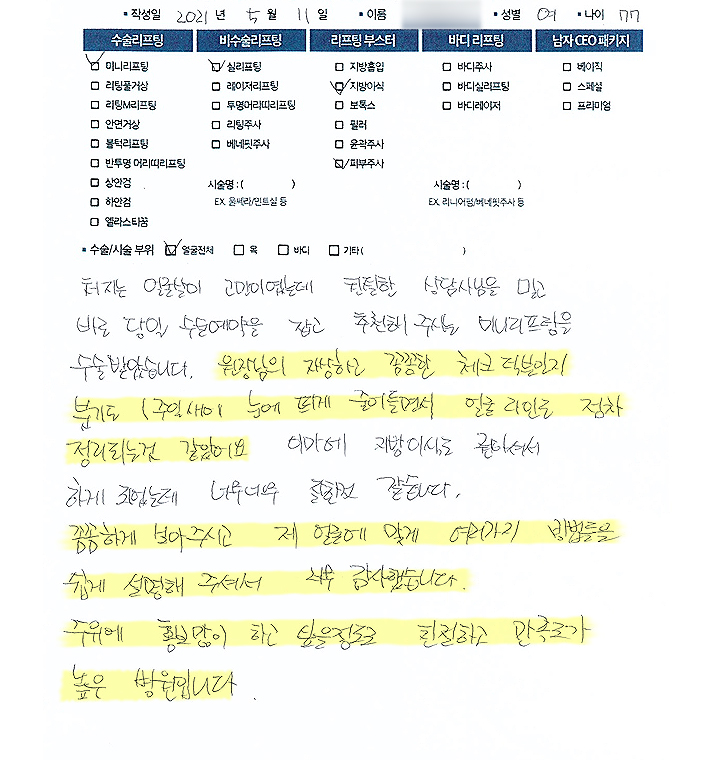 ▪ 작성일 2021 년 5 월 11 일 ▪ 이름 ▪ 성별 여 ▪ 나이 77
수술리프팅 비수술리프팅 리프팅 부스터 바디 리프팅 남자 CEO 패키지
☑ 미니리프팅 ☑ 실리프팅 □ 지방흡입 □ 바디주사 □ 베이직
□ 리팅풀거상 □ 레이저리프팅 ☑ 지방이식 □ 바디실리프팅 □ 스페셜
□ 리팅M리프팅 □ 투명머리띠리프팅 □ 보톡스 □ 바디레이저 □ 프리미엄
□ 안면거상 □ 리팅주사 □ 필러
□ 불턱리프팅 □ 베네핏주사 □ 윤곽주사
□ 반투명 머리띠리프팅 ☑ 피부주사
□ 상안검 시술명 : ( ) 시술명 : ( )
□ 하안검 EX. 울쎄라/민트실 등 EX. 리니어펌/베네핏주사 등
□ 엘라스티꿈
▪ 수술/시술 부위 ☑ 얼굴전체 □ 목 □ 바디 □ 기타 ( )
처지는 얼굴살이 고민이였는데 친절한 상담사님을 믿고
바로 당일 수술예약을 잡고 추천해 주시는 미니리프팅을
수술받았습니다. 원장님의 자상하고 꼼꼼한 체크 덕분인지
붓기도 1주일새에 눈에 띄게 줄어들면서 얼굴 라인도 점차
정리되는것 같았어요 이마에 지방이식도 좋아서
하게 되었는데 너무너무 잘한것 같습니다.
꼼꼼하게 보아주시고 제 얼굴에 맞게 여러가지 방법들을
쉽게 설명해 주셔서 너무 감사했습니다.
주위에 홍보많이 하고 싶을정도로 친절하고 만족도가
높은 병원입니다.